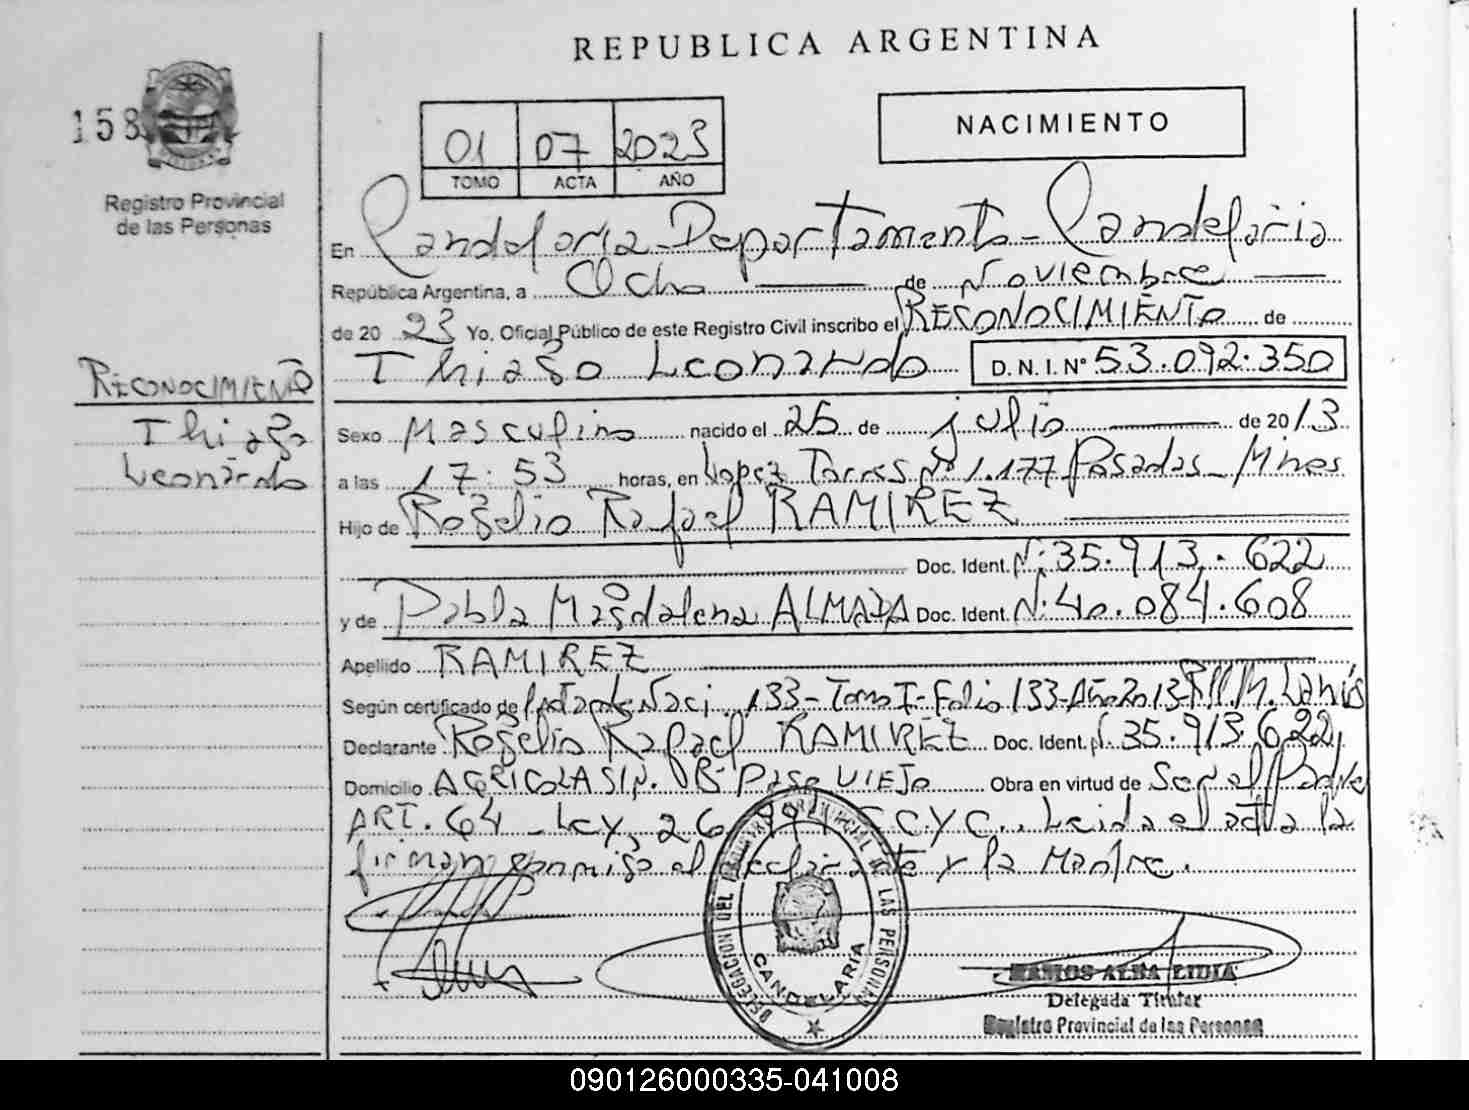 REPUBLICA ARGENTINA
158
NACIMIENTO
01 07 2023
TOMO ACTA AÑO
Registro Provincial
de las Personas
En Candelaria - Departamento - Candelaria
República Argentina, a Ocho de Noviembre
de 20 23 Yo, Oficial Público de este Registro Civil inscribo el RECONOCIMIENTO de
Thiago Leonardo D. N. I. N° 53.092.350
RECONOCIMIENTO
Thiago
Leonardo
Sexo Masculino nacido el 25 de julio de 20 13
a las 17:53 horas, en Lopez Torres N° 1.177 Posadas - Mnes
Hijo de Rogelio Rafael RAMIREZ
Doc. Ident. N: 35.913.622
y de Pabla Magdalena ALMADA Doc. Ident. N: 40.084.608
Apellido RAMIREZ
Según certificado de Naci. 133 - Tomo I - Folio 133 - Año 2013
Declarante Rogelio Rafael RAMIREZ Doc. Ident. N. 35.913.622
Domicilio AGRICOLA S/N. VIEJO Obra en virtud de Ser el Padre
ART. 64 - Ley, 26.994 CCYC. Leida el acta la
firman conmigo el declarante y la Madre.
DELEGACION DEL REGISTRO PROVINCIAL DE LAS PERSONAS
CANDELARIA
RAMOS ALBA LIDIA
Delegada Titular
Registro Provincial de las Personas
090126000335-041008